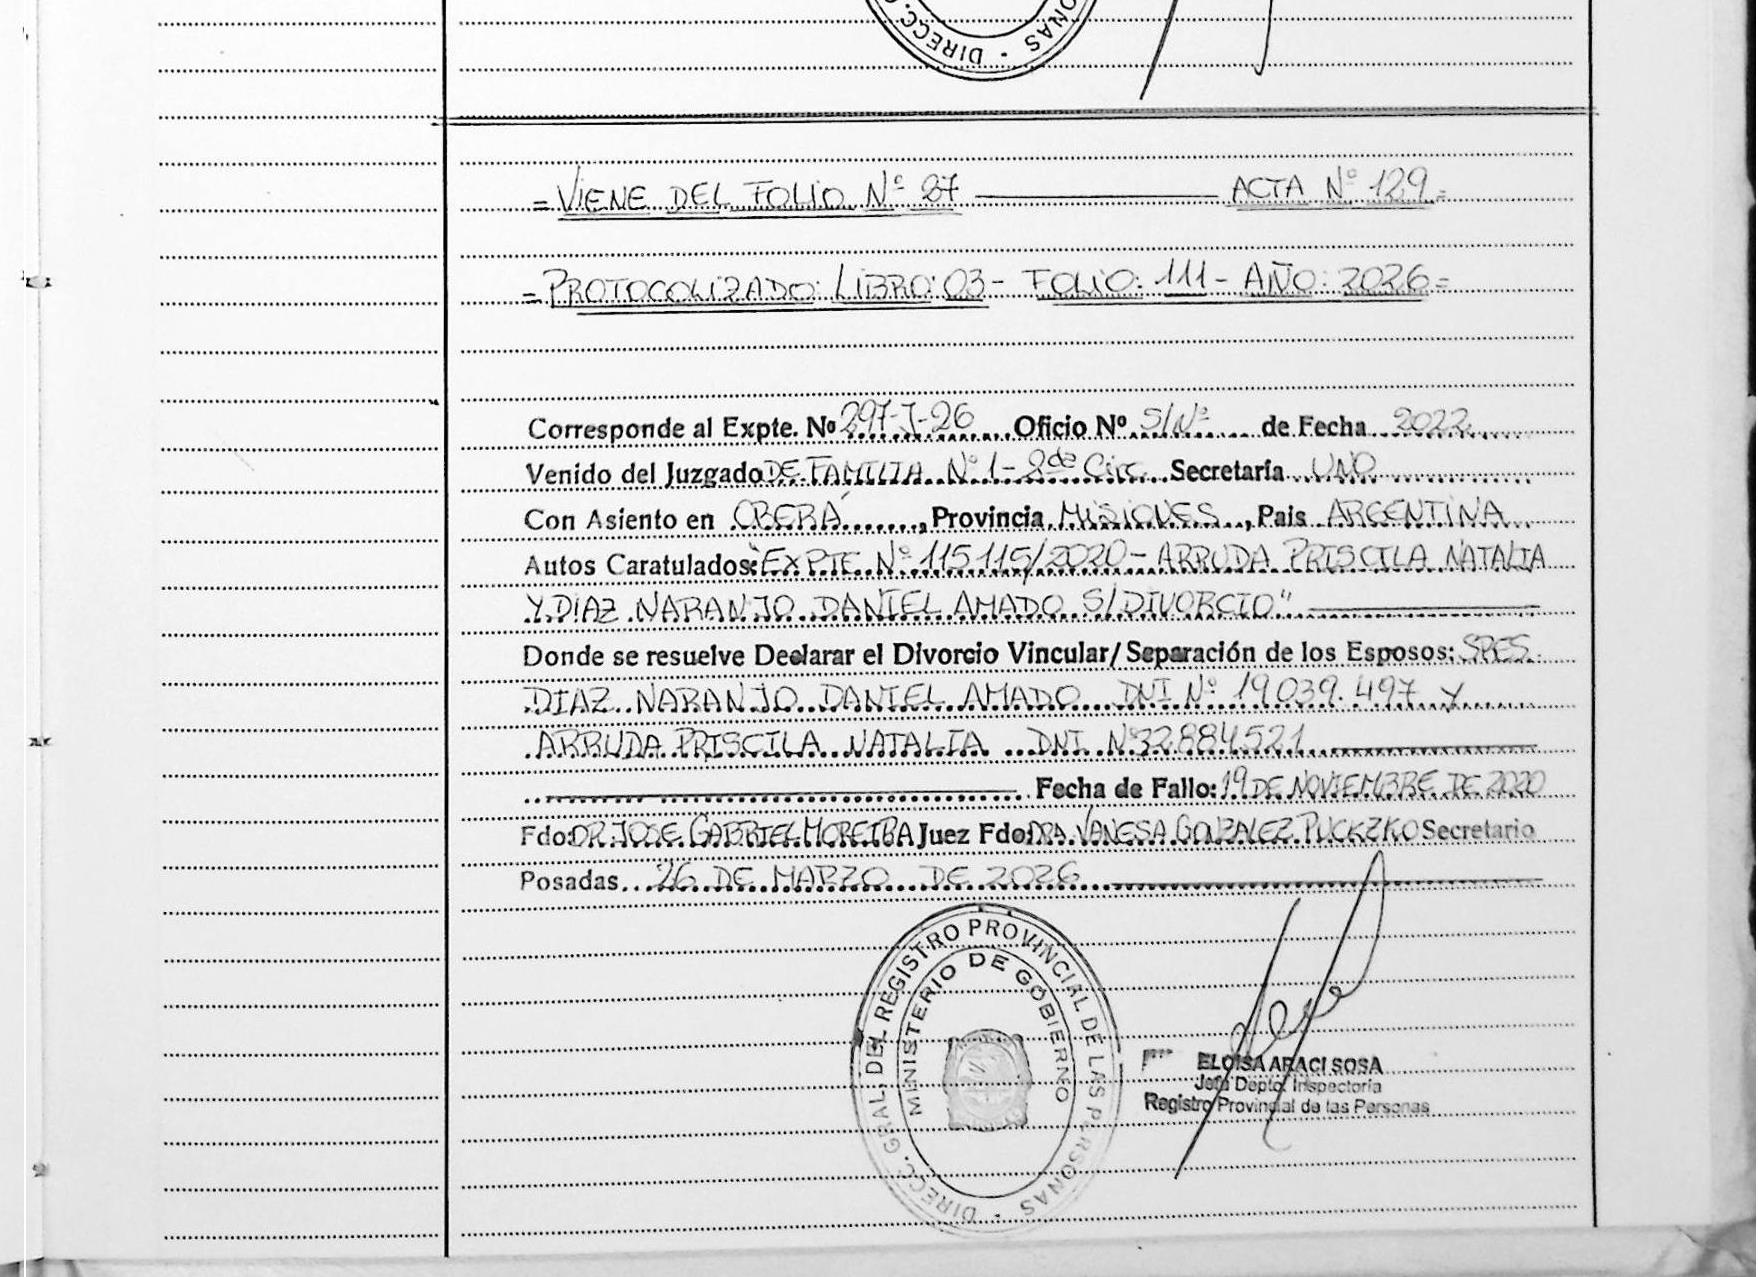 DIRECC. ONAS -
= VIENE DEL FOLIO Nº 27 ——— ACTA Nº 129 =
= PROTOCOLIZADO: LIBRO: 03 - FOLIO: 111 - AÑO: 2026 =
Corresponde al Expte. Nº 297-J-26 Oficio Nº S/Nº de Fecha 2022
Venido del Juzgado DE FAMILIA Nº 1 - 2da Circ. Secretaría UNO
Con Asiento en OBERÁ, Provincia MISIONES, Pais ARGENTINA
Autos Caratulados: "EXPTE Nº 115115/2020 - ARRUDA PRISCILA NATALIA
Y DIAZ NARANJO DANIEL AMADO S/DIVORCIO"
Donde se resuelve Declarar el Divorcio Vincular/Separación de los Esposos: SRES.
DIAZ NARANJO DANIEL AMADO DNI Nº 19.039.497 Y
ARRUDA PRISCILA NATALIA DNI Nº 32884521
Fecha de Fallo: 19 DE NOVIEMBRE DE 2020
Fdo: DR. JOSE GABRIEL MOREIRA Juez Fdo: DRA. VANESA GONZALEZ PUCKZKO Secretario
Posadas 26 DE MARZO DE 2026
DIRECC. GRAL. DEL REGISTRO PROVINCIAL DE LAS PERSONAS -
MINISTERIO DE GOBIERNO
ELOISA ARACI SOSA
Jefa Depto. Inspectoria
Registro Provincial de las Personas